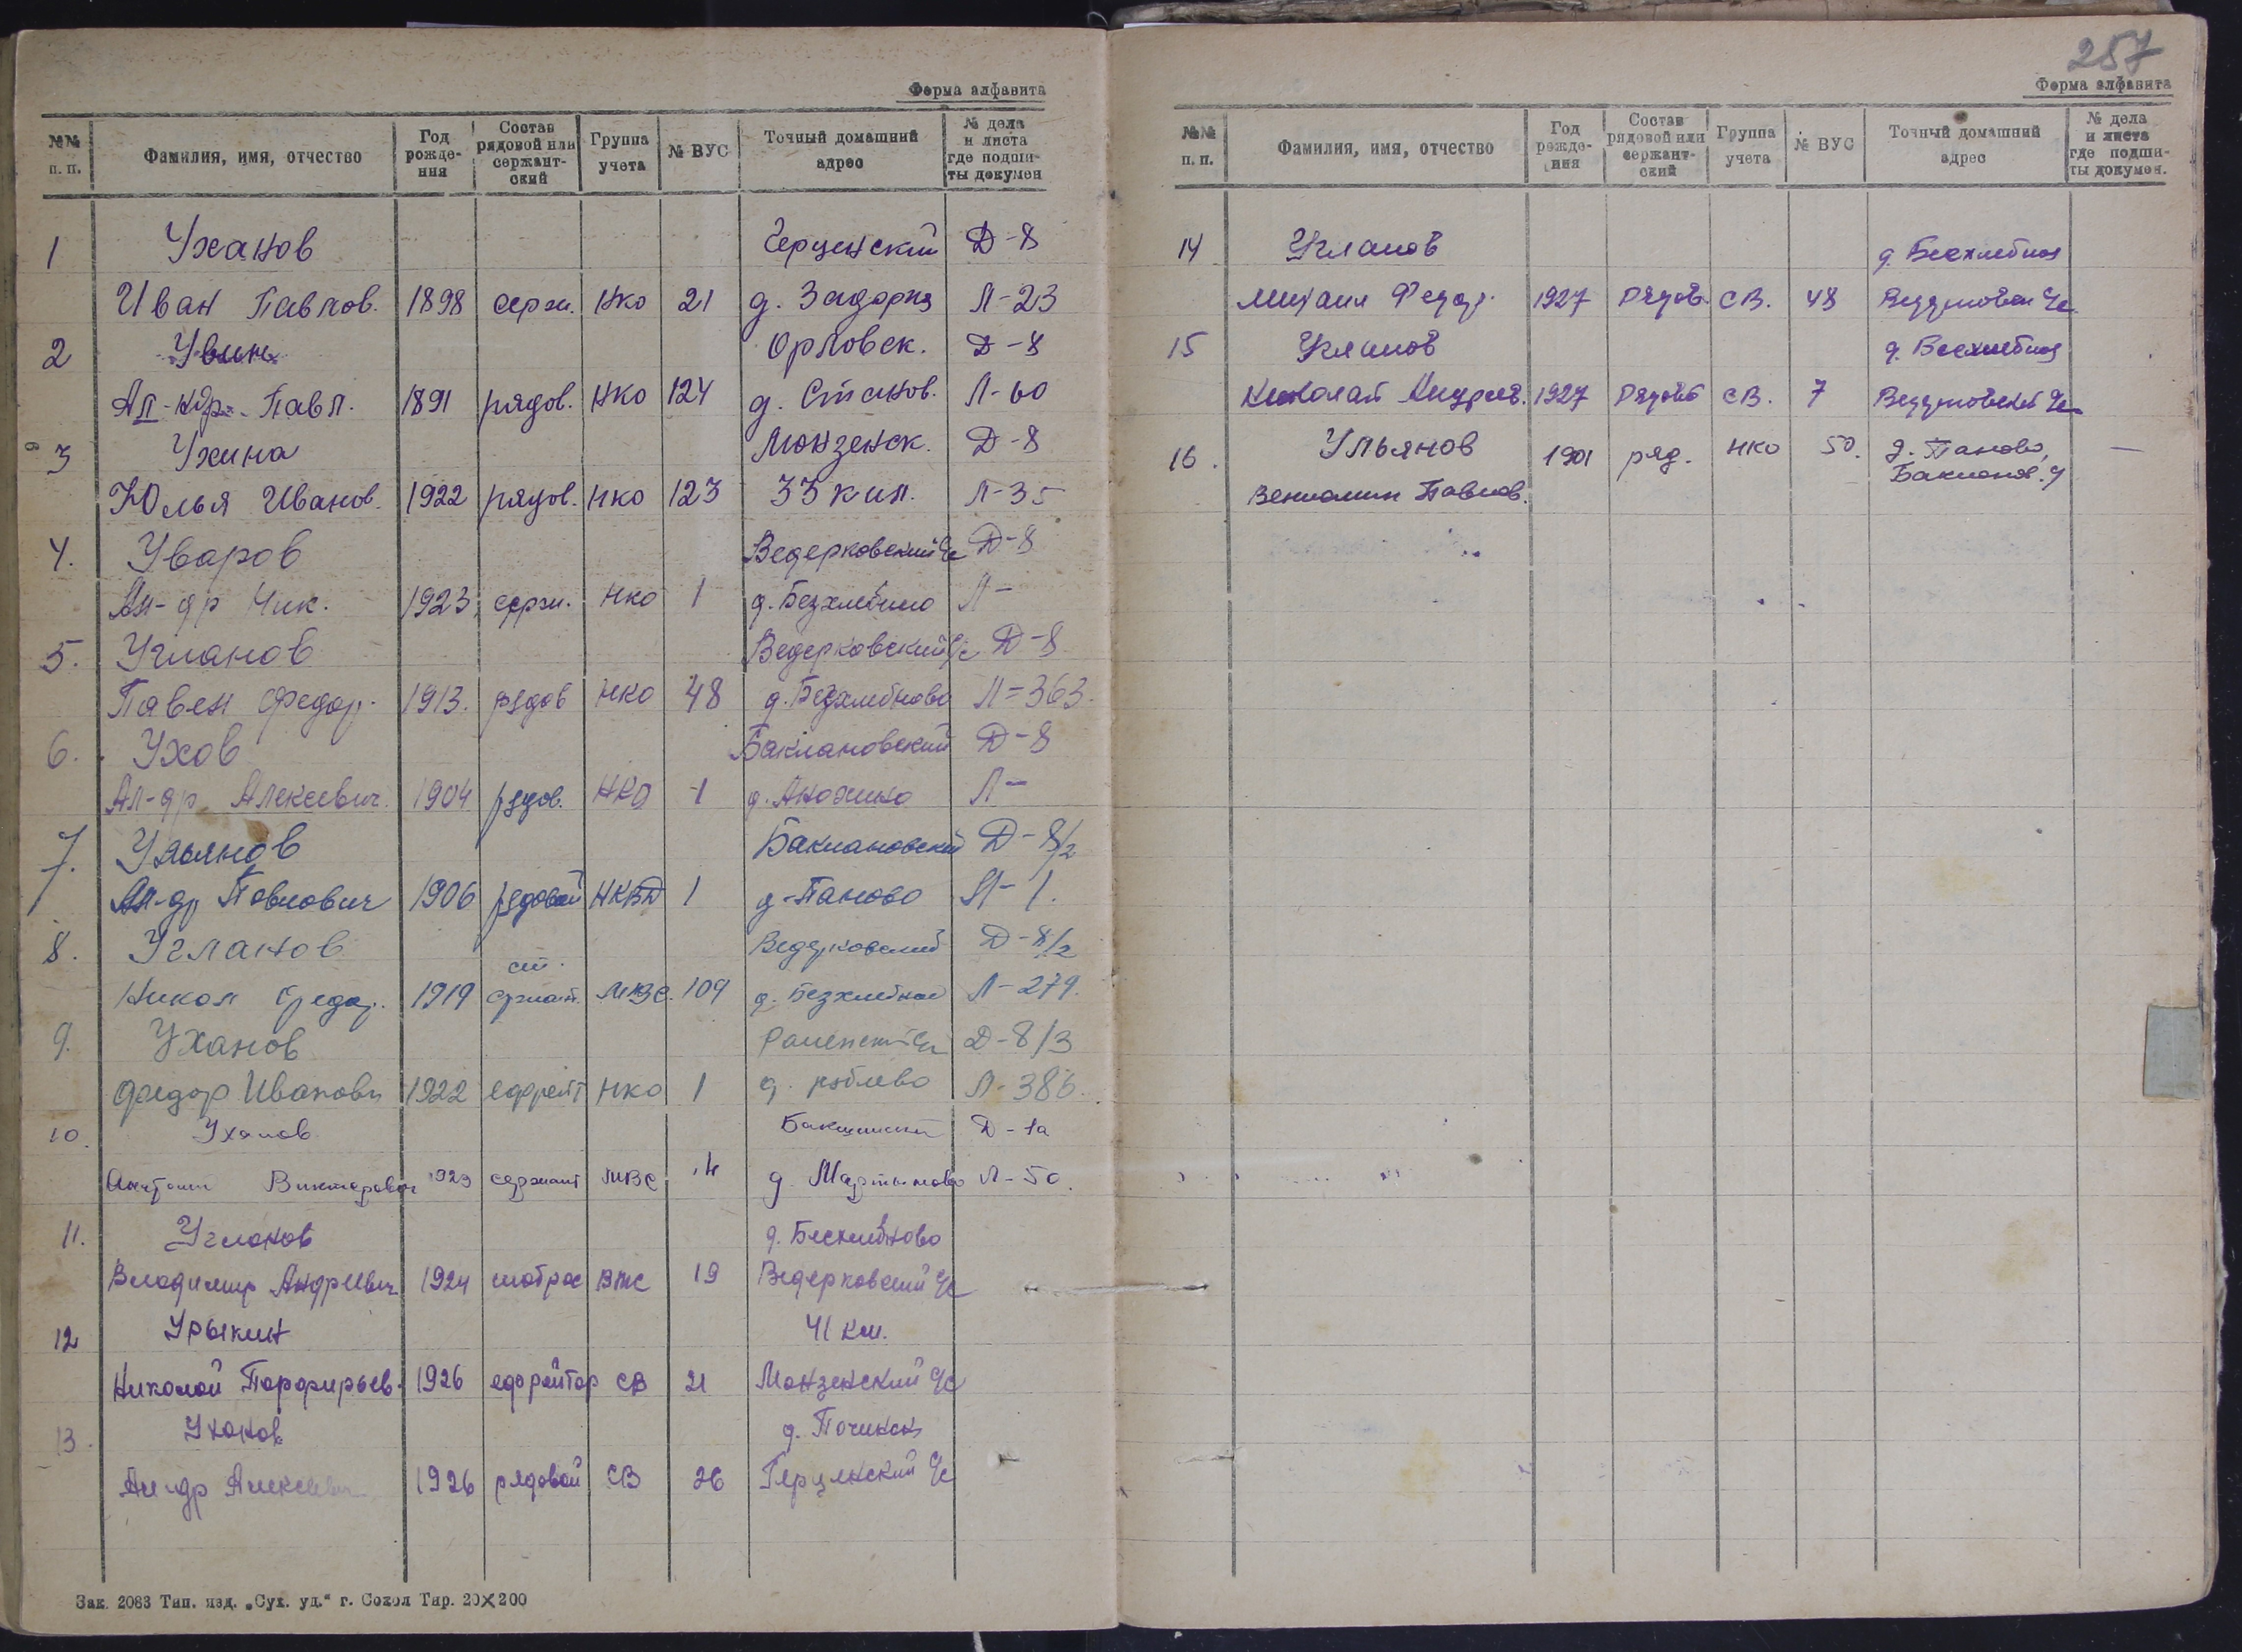 Форма алфавита
№№ п. п. Фамилия, имя, отчество Год рожде- ния Состав рядовой или сержант- ский Группа учета № ВУС Точный домашний адрес № дела и листа где подши- ты докумен
1 Уханов Герценский Д-8
Иван Павлов. 1898 серж. НКО 21 д. Задорка Л-23
2 Увин Орловск. Д-8
Ал-ндр. Павл. 1891 рядов. НКО 124 д. Станов. Л-60
3 Ухина Монзенск. Д-8
Юлья Иванов. 1922 рядов. НКО 123 33 кил. Л-35
4. Уваров Ведерковский с/с Д-8
Ал-др Ник. 1923 серж. НКО 1 д. Безхлебново Л-
5. Угланов Ведерковский с/с Д-8
Павел Федор. 1913. рядов НКО 48 д. Безхлебново Л-363.
6. Ухов Баклановский Д-8
Ал-др Алексевич. 1904 рядов. НКО 1 д. Анохино Л-
7. Ульянов Баклановский Д-8/2
Ал-др Павлович 1906 рядовой НКВД 1 д-Паново Л-1.
8. Угланов Ведерковский Д-8/2
Никол Федор. 1919 ст. сржант. МВС. 109 д. Безхлебное Л-279.
9. Уханов Раменский с/с Д-8/3
Федор Иванович 1922 ефрейт НКО 1 д. Л-386.
10. Уханов Д-1а
Викторович 1923 сержант МВС 4 д. Мартыново Л-50.
11. Угланов д. Бесхлебново
Владимир Андреевич 1924 матрос ВМС 19 Ведерковский с/с
12 Урыкин 41 км.
Николай Порфирьев. 1926 ефрейтор СВ 21 Монзенский с/с
13. Уханов д. Починок
Ал-др Алексеевич 1926 рядовой СВ 26 Герценский с/с
Зак. 2083 Тип. изд. „Сух. уд.“ г. Сокол Тир. 20×200
257
Форма алфавита
№№ п. п. Фамилия, имя, отчество Год рожде- ния Состав рядовой или сержант- ский Группа учета № ВУС Точный домашний адрес № дела и листа где подши- ты докумен.
14 Угланов д. Бесхлебное
Михаил Федор. 1927 рядов. СВ. 48 с/с
15 Угланов д. Бесхлебное
Николай Андреев. 1927 рядов СВ. 7 с/с
16. Ульянов 1901 ряд. НКО 50. д. Паново, —
Вениамин Павлов. Баклонов.